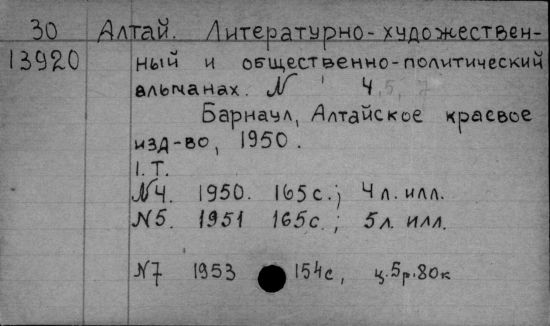 30 Алтай. Литературно-художествен-
13920 ный и общественно-политический
альманах. N 4, 5, 7
Барнаул, Алтайское краевое
изд-во, 1950.
1.Т.
N4. 1950. 165с.; 4л. илл.
N5. 1951 165с.; 5л. илл.
N7 1953 154с, ц.5р.80к